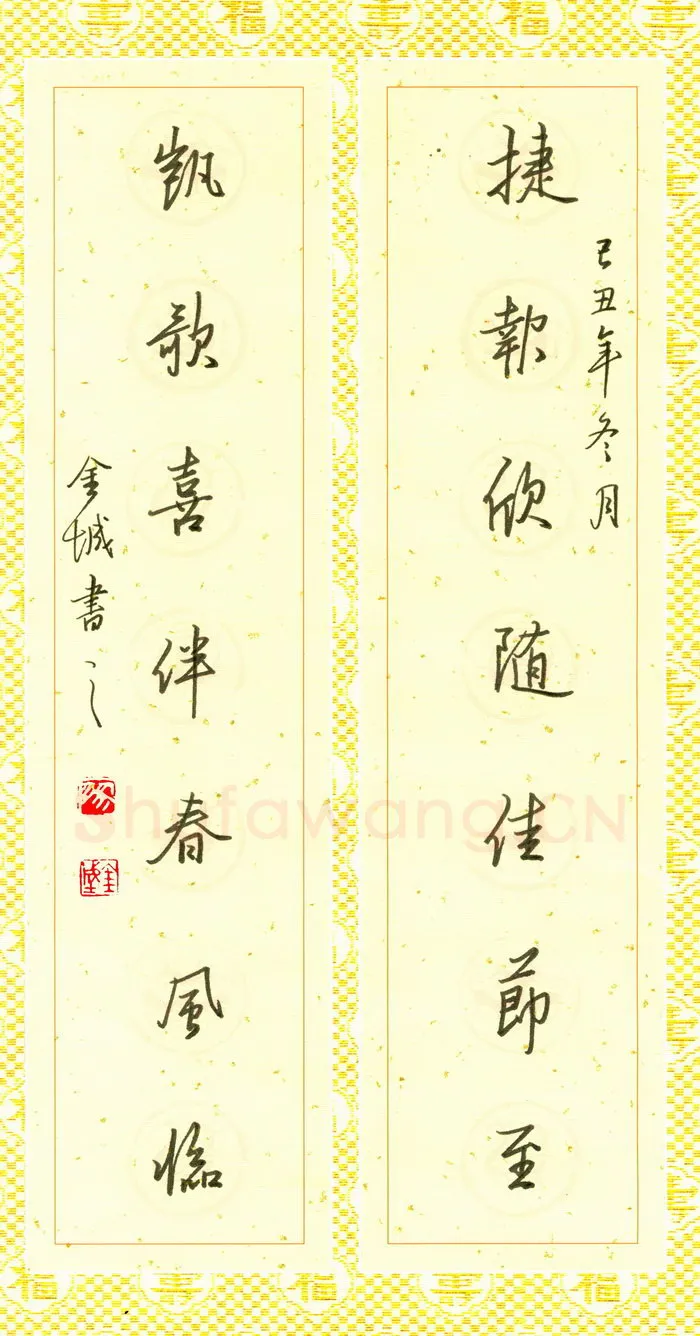 己丑年冬月
捷報欣随佳節至
凱歌喜伴春風臨
金城書之
Shufawang.CN